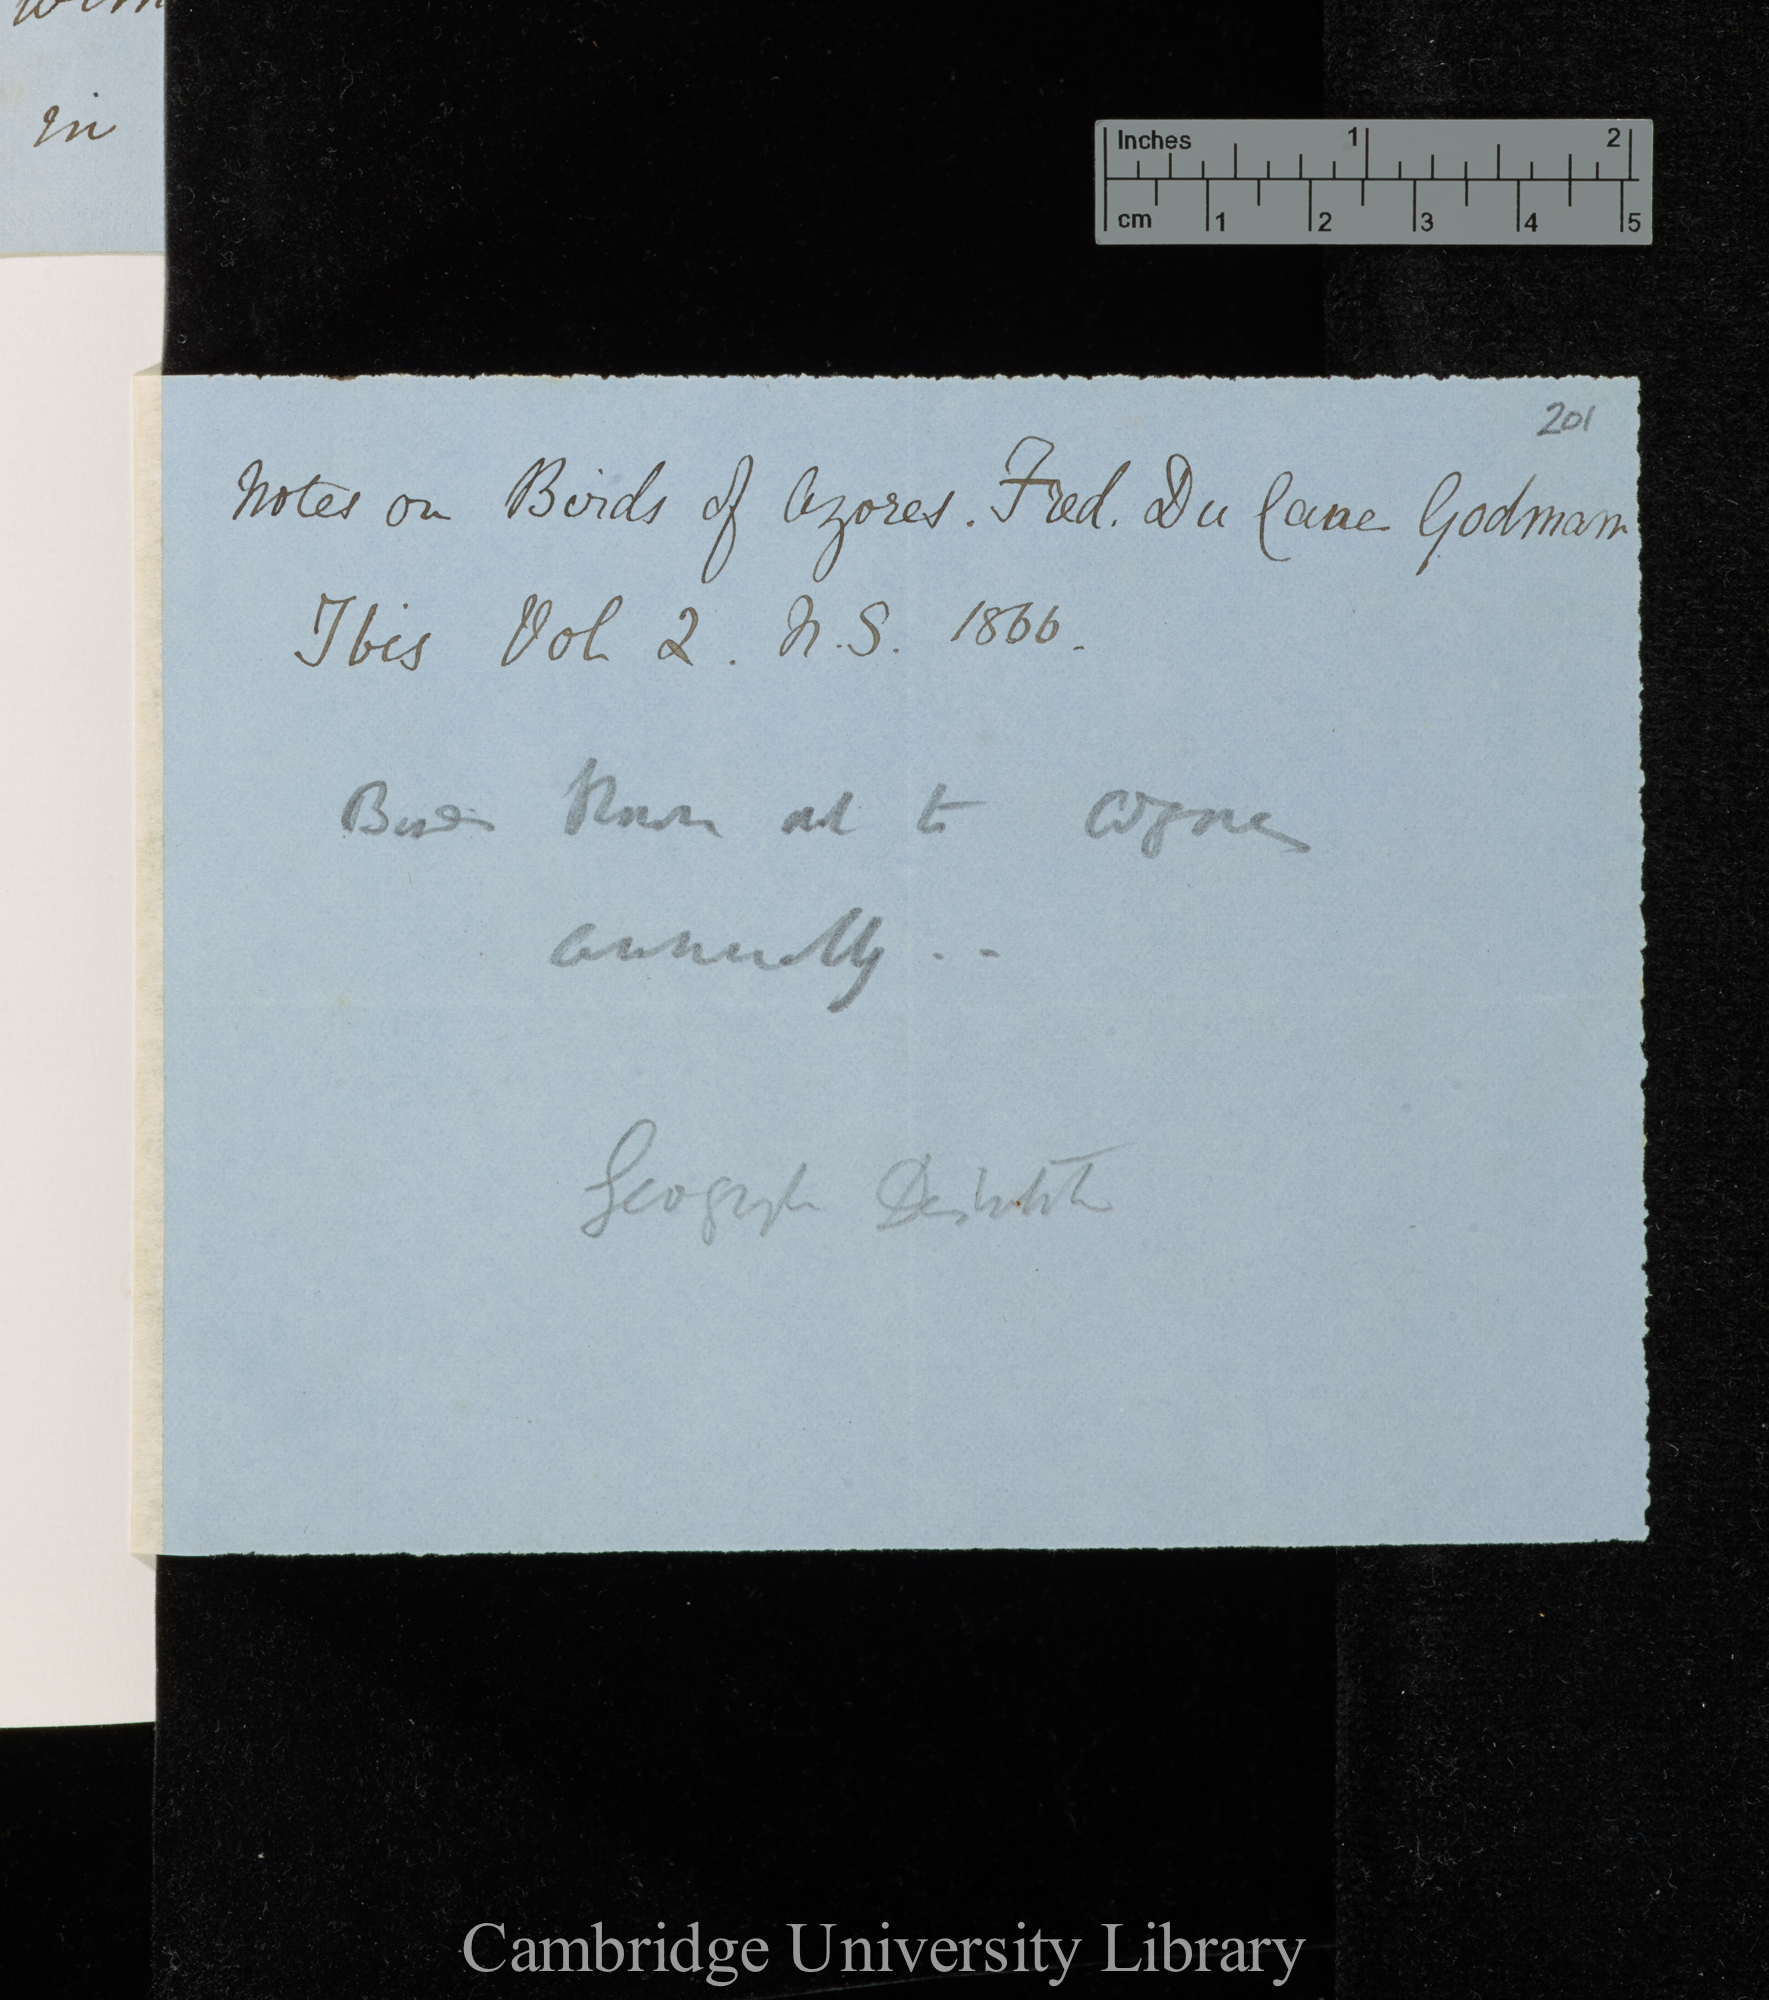 in
Inches 1 2
cm 1 2 3 4 5
201
Notes on Birds of Azores. Fred. Du Cane Godman
Ibis Vol 2. N.S. 1866.
Birds blown out to Azores
annually - -
Geograph Distrib
Cambridge University Library